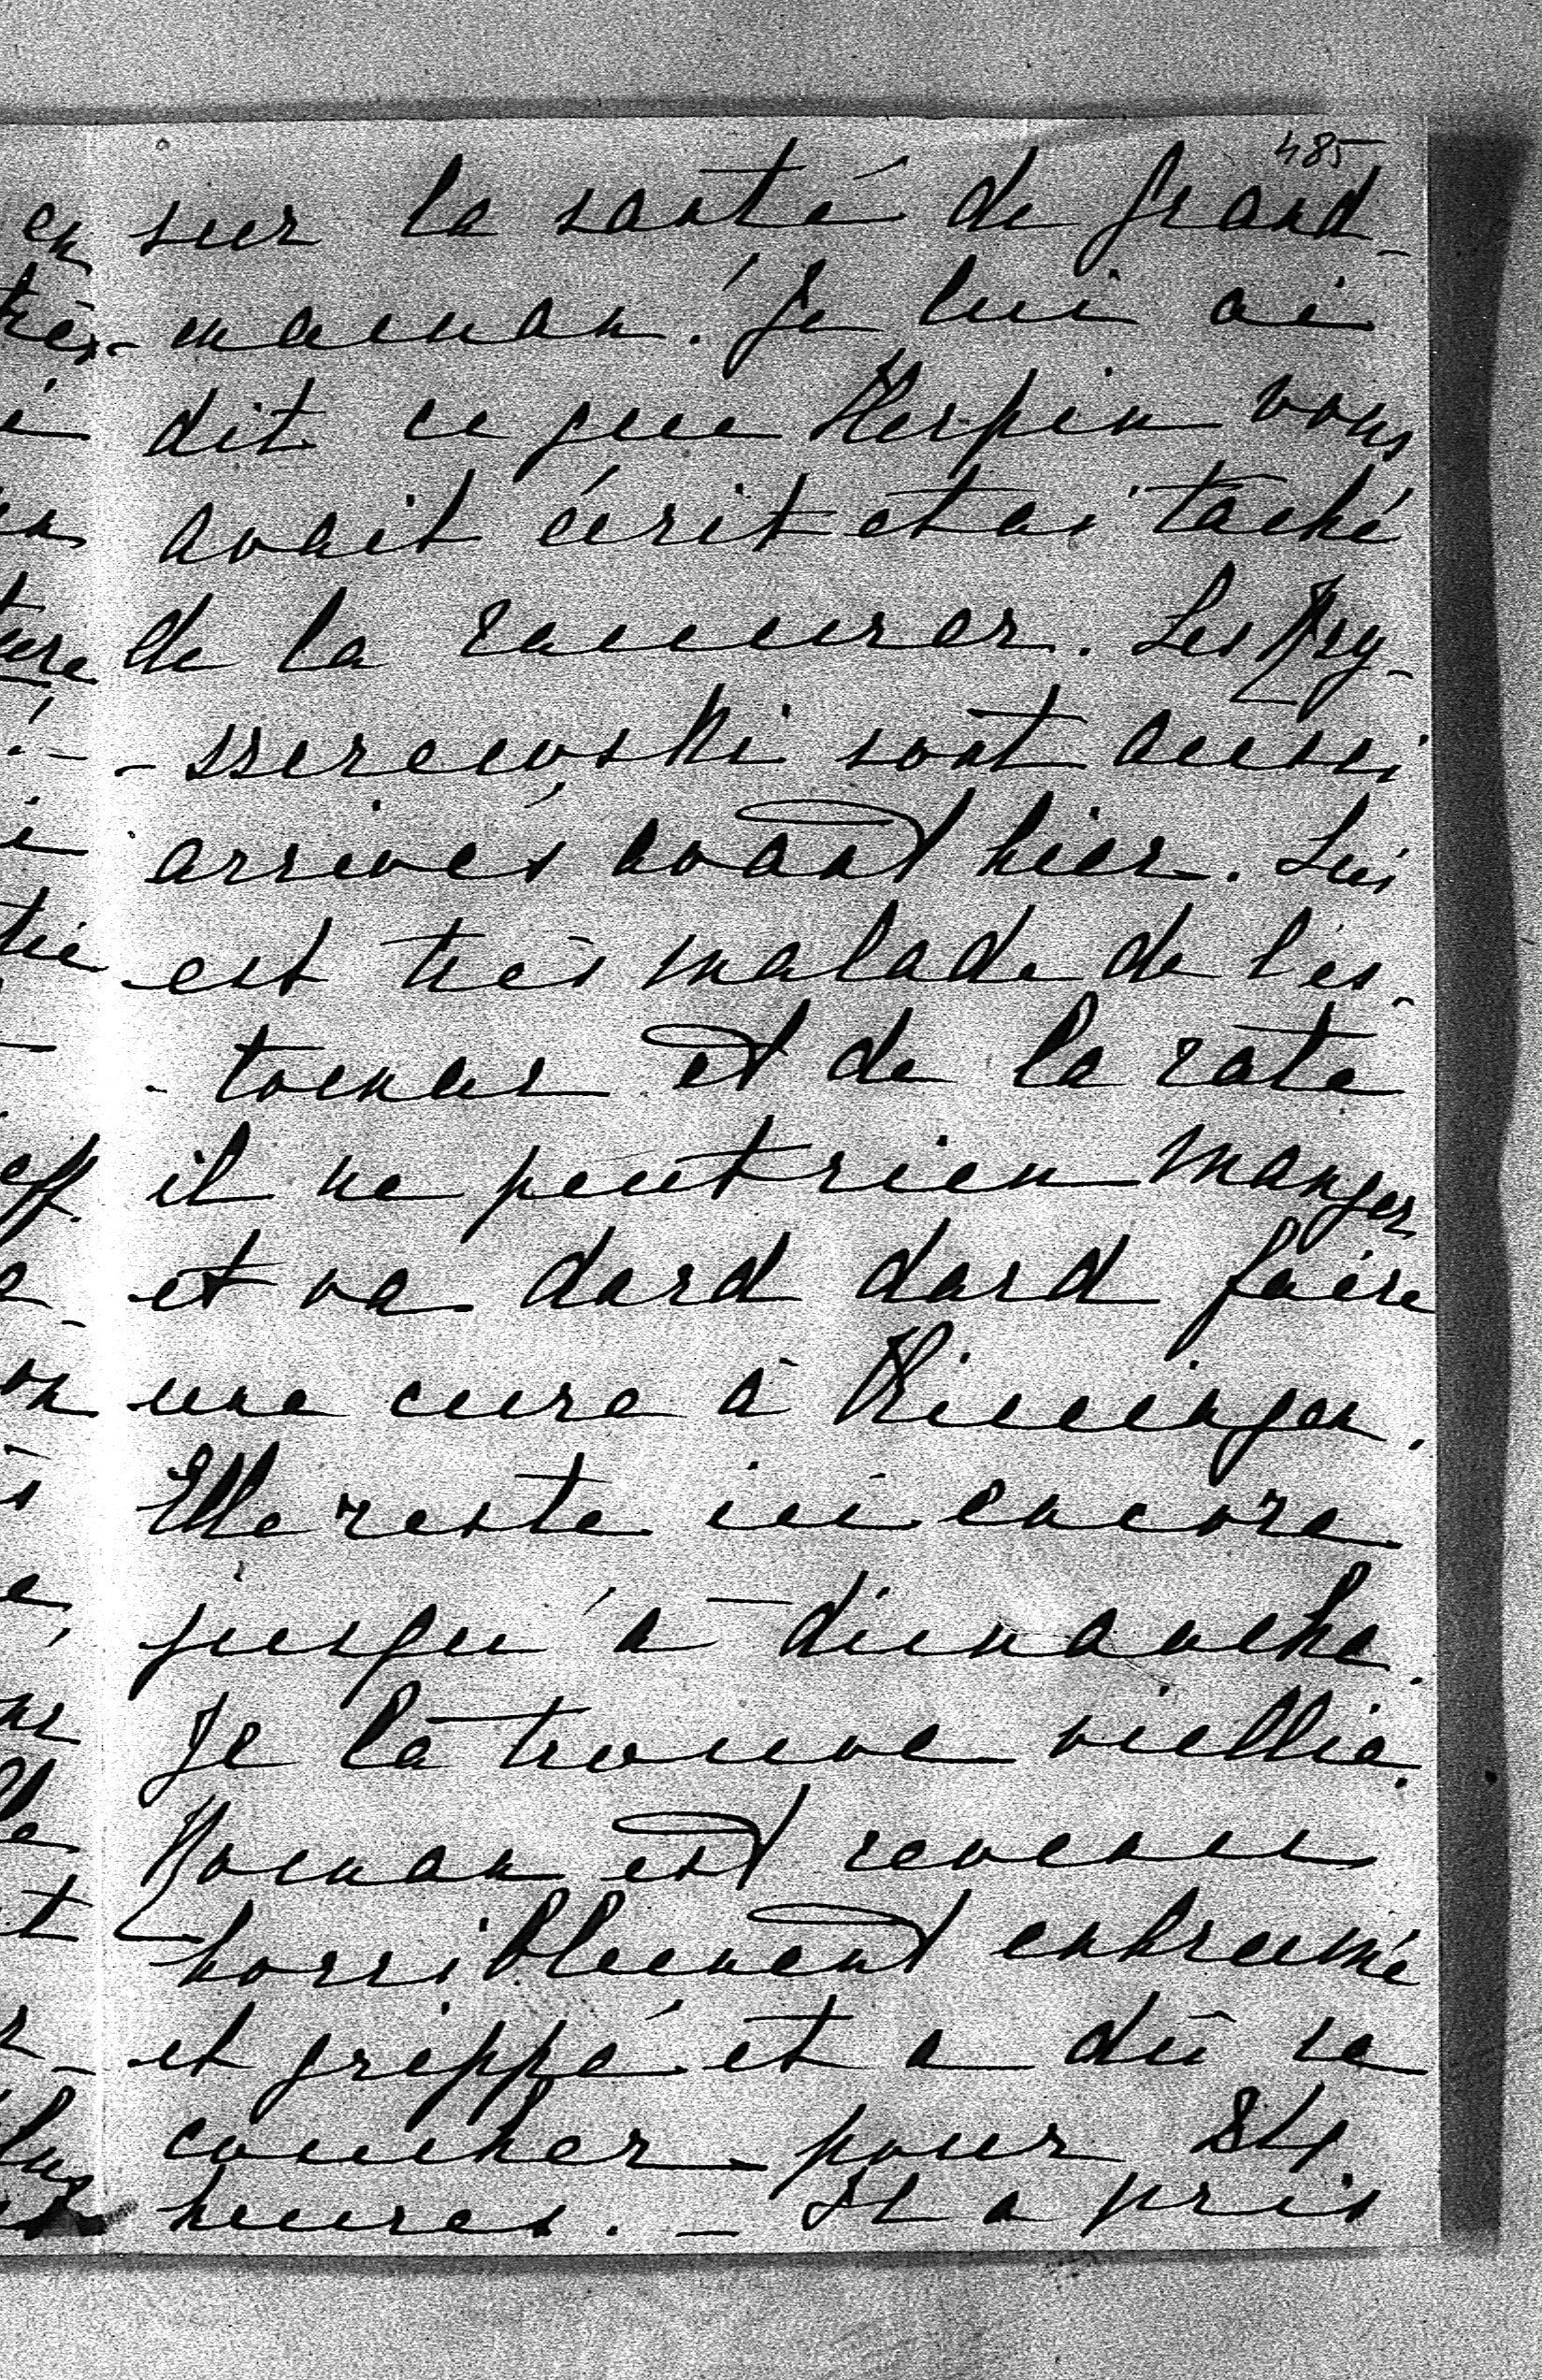 485
sur la santé de grand-
maman. Je lui ai
dit ce que Kerpin vous
avait écrit et ai taché
de la rassurer. Les Kry-
-sserewski sont aussi
arrivés avant hier. Lui
est très malade de l'es-
-tomac et de la rate
il ne peut rien manger
et va dard dard faire
une cure à Kissingen.
Elle reste ici encore
jusqu'à dimanche.
Je la trouve viellie.
Roman est revenu
horriblement enhrumé
et grippé et a dû se
coucher pour 24
heures. – Il a pris